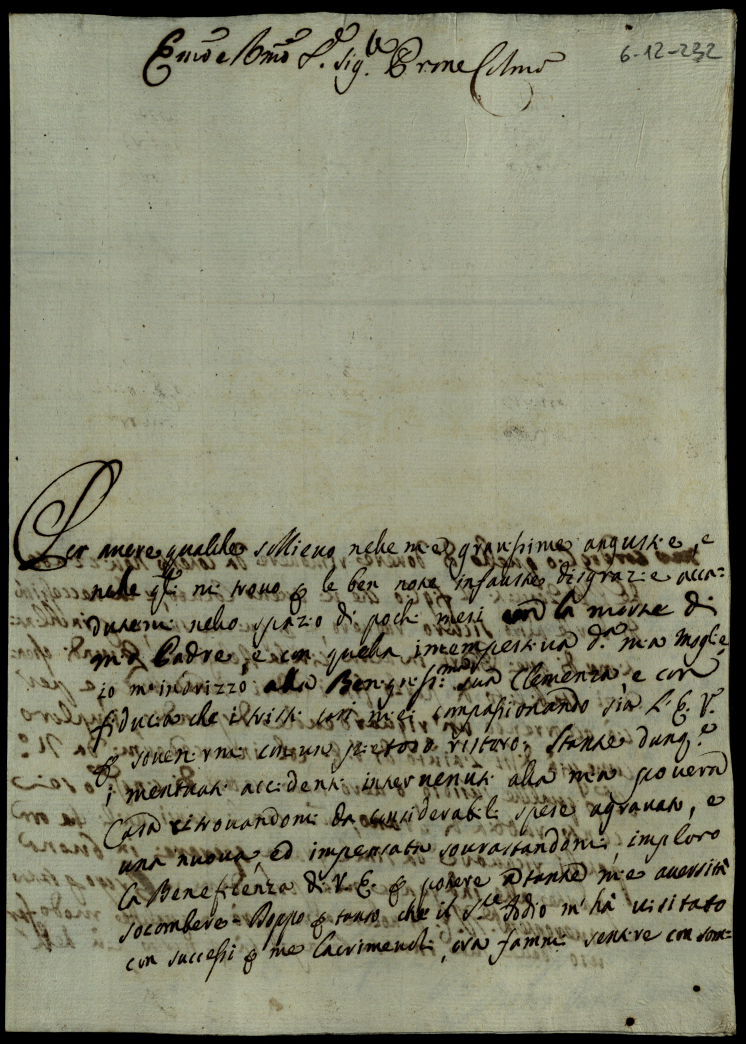 Emo e Rmo P. Sig.r Prone Colmo
6-12-232
Per avere qualche sollievo nelle mie gravissime angustie, e
nelle q.li mi trovo p le ben note infauste disgrazie acca=
dutemi nello spazio di pochi mesi con la morte di
mio Padre, e con quella intempestiva d.a mia moglie
io m'indrizzo alla Benignissi.ma sua Clemenza, e con
fiducia che i tristi casi miei compassionando sia L'E. V.a
p sovenirmi con un pietoso ristoro; Stante dunq.e
i mentuati accidenti intervenuti alla mia povera
Casa ritrovandomi da considerabili spese agravato, e
una nuova, ed impensata sovrastandomi, imploro
la Beneficenza di V. E. p potere a tante mie aversità
socombere - Doppo p tanto che il S.re Iddio m'hà visitato
con successi p me lacrimevoli, ora fammi sentire con som=